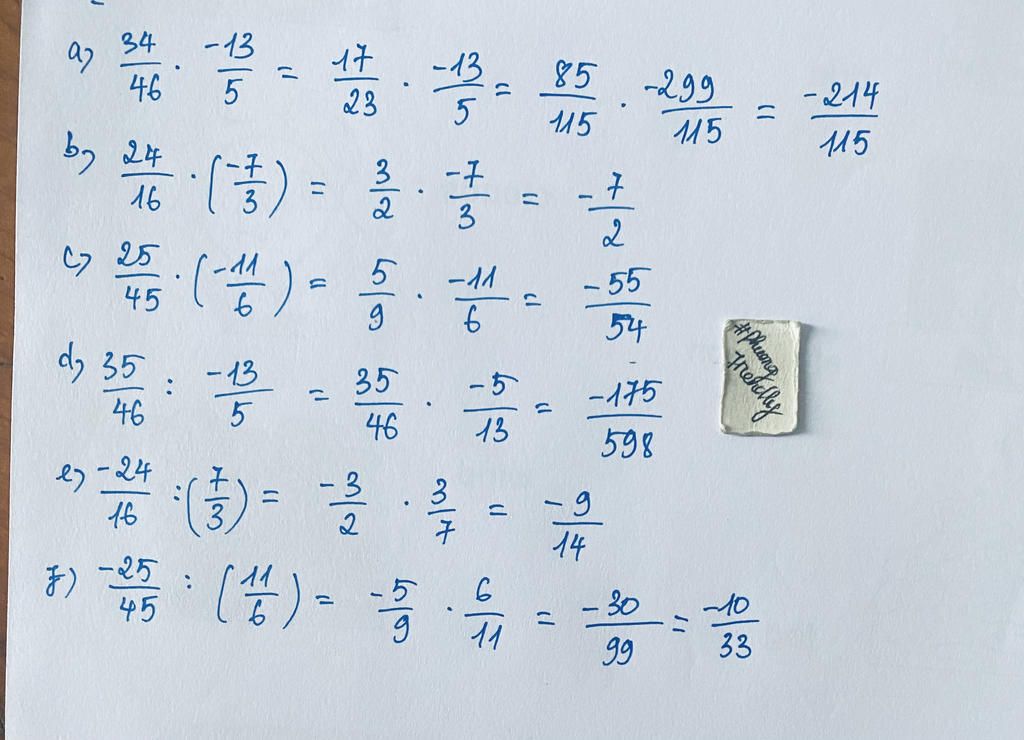 a) 34/46 · -13/5 = 17/23 · -13/5 = 85/115 · -299/115 = -214/115
b) 24/16 · (-7/3) = 3/2 · -7/3 = -7/2
c) 25/45 · (-11/6) = 5/9 · -11/6 = -55/54
d) 35/46 : -13/5 = 35/46 · -5/13 = -175/598
e) -24/16 : (7/3) = -3/2 · 3/7 = -9/14
f) -25/45 : (11/6) = -5/9 · 6/11 = -30/99 = -10/33